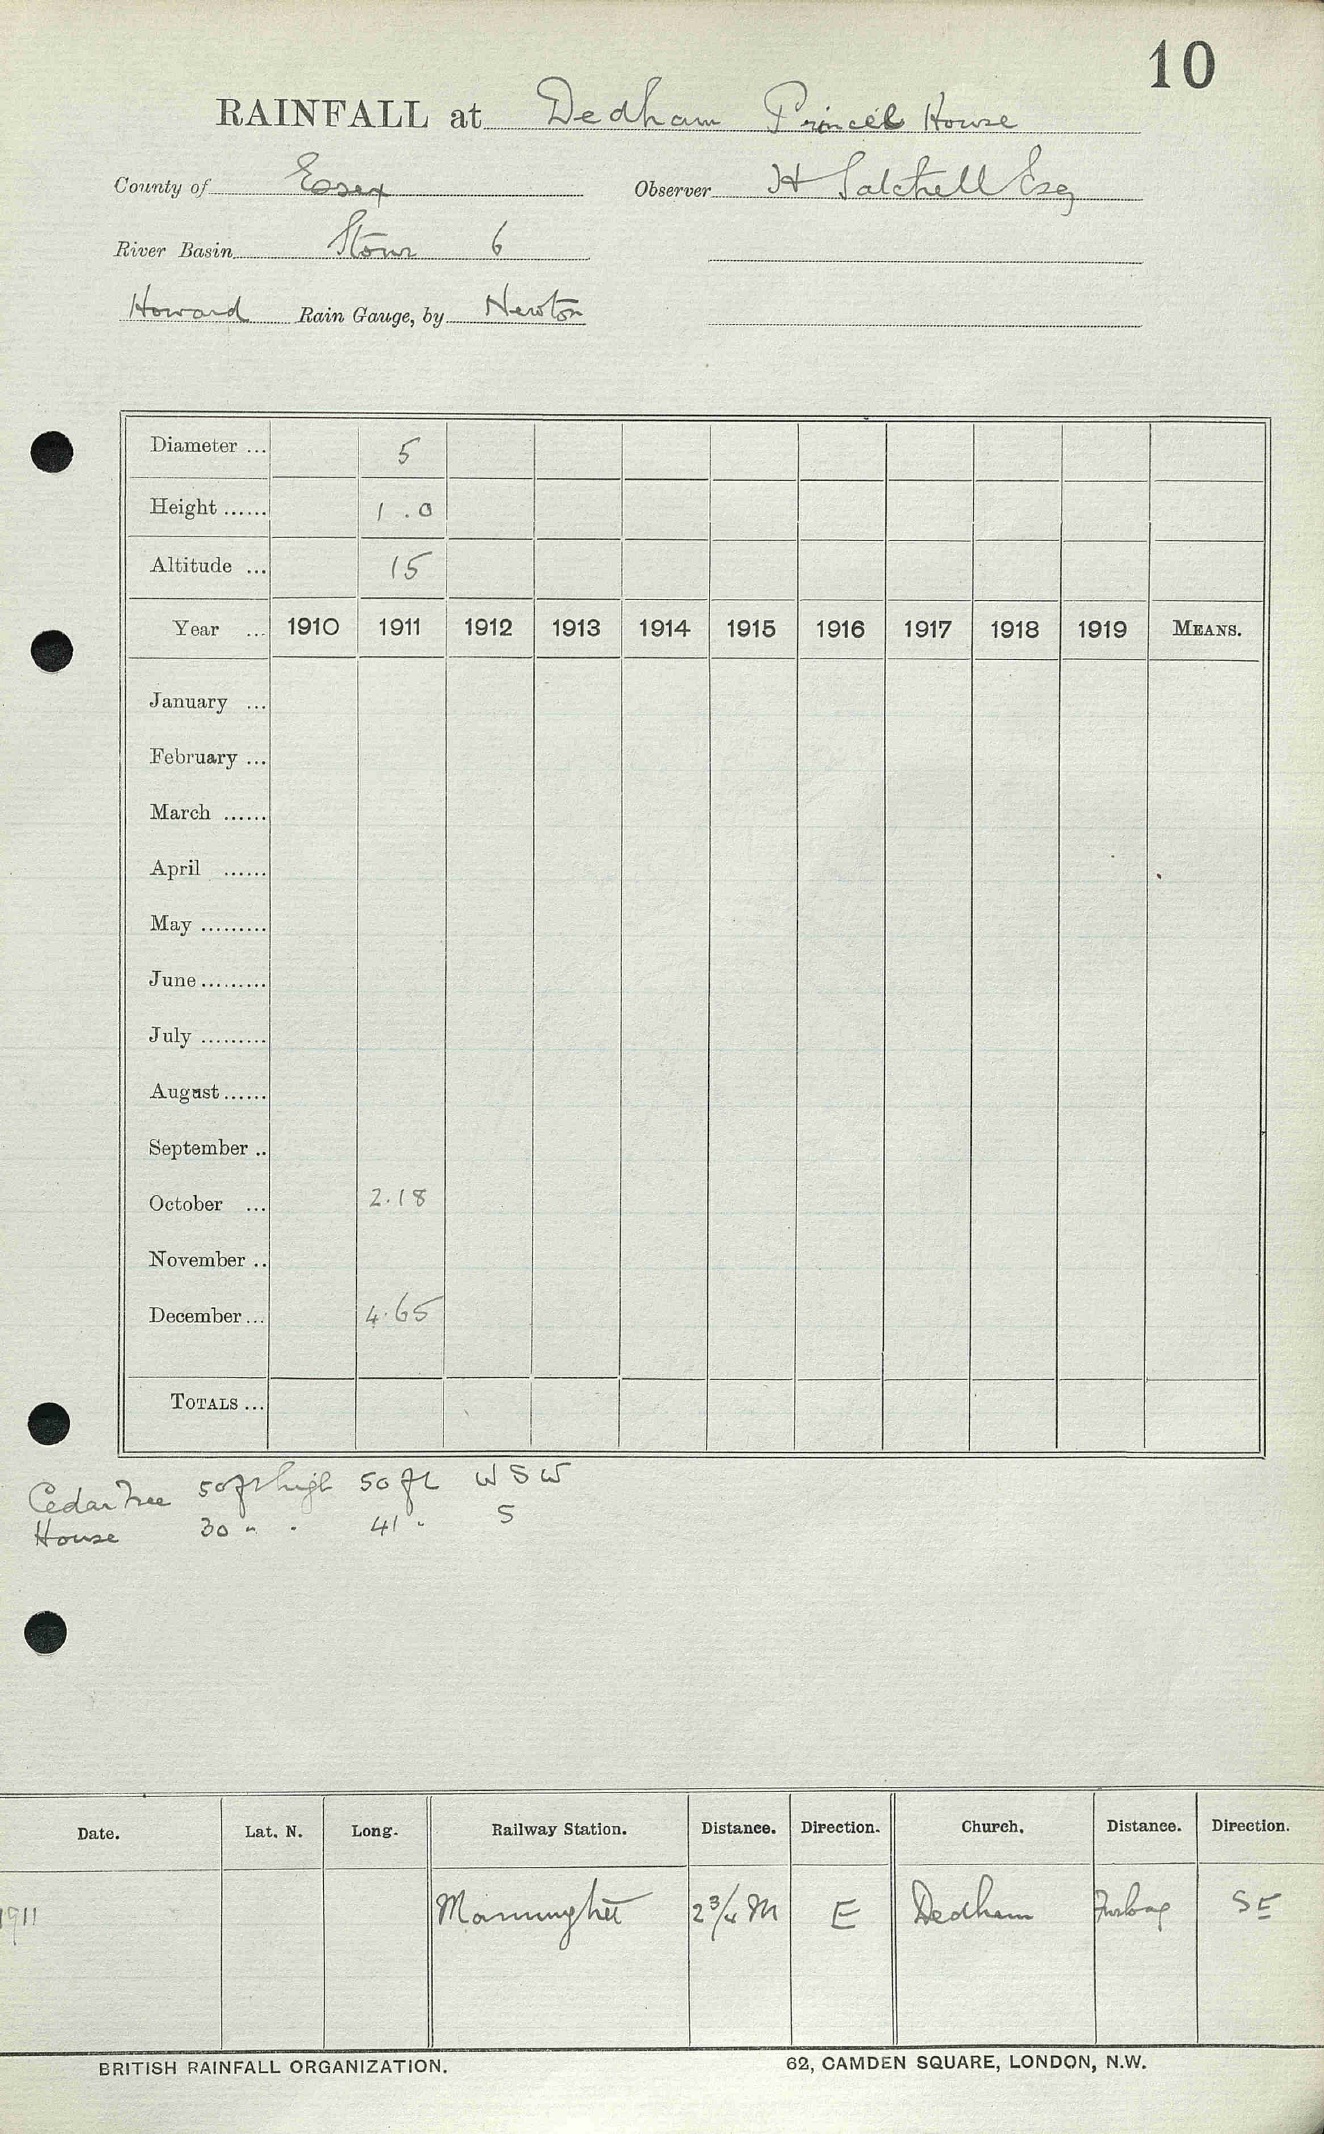 10
RAINFALL at Dedham Princes House
County of Essex Observer H Satchell Esq
River Basin Stour 6
Howard Rain Gauge, by Newton
Diameter ... 5
Height ...... 1.0
Altitude ... 15
Year ... 1910 1911 1912 1913 1914 1915 1916 1917 1918 1919 MEANS.
January ...
February ...
March ......
April ......
May .........
June .........
July .........
August ......
September ..
October ... 2.18
November ..
December ... 4.65
TOTALS ...
Cedar Tree 50ft high 50 ft WSW
House 30 " " 41 " S
Date. Lat. N. Long. Railway Station. Distance. Direction. Church. Distance. Direction.
1911 2 3/4 M E Dedham Furlong SE
BRITISH RAINFALL ORGANIZATION. 62, CAMDEN SQUARE, LONDON, N.W.